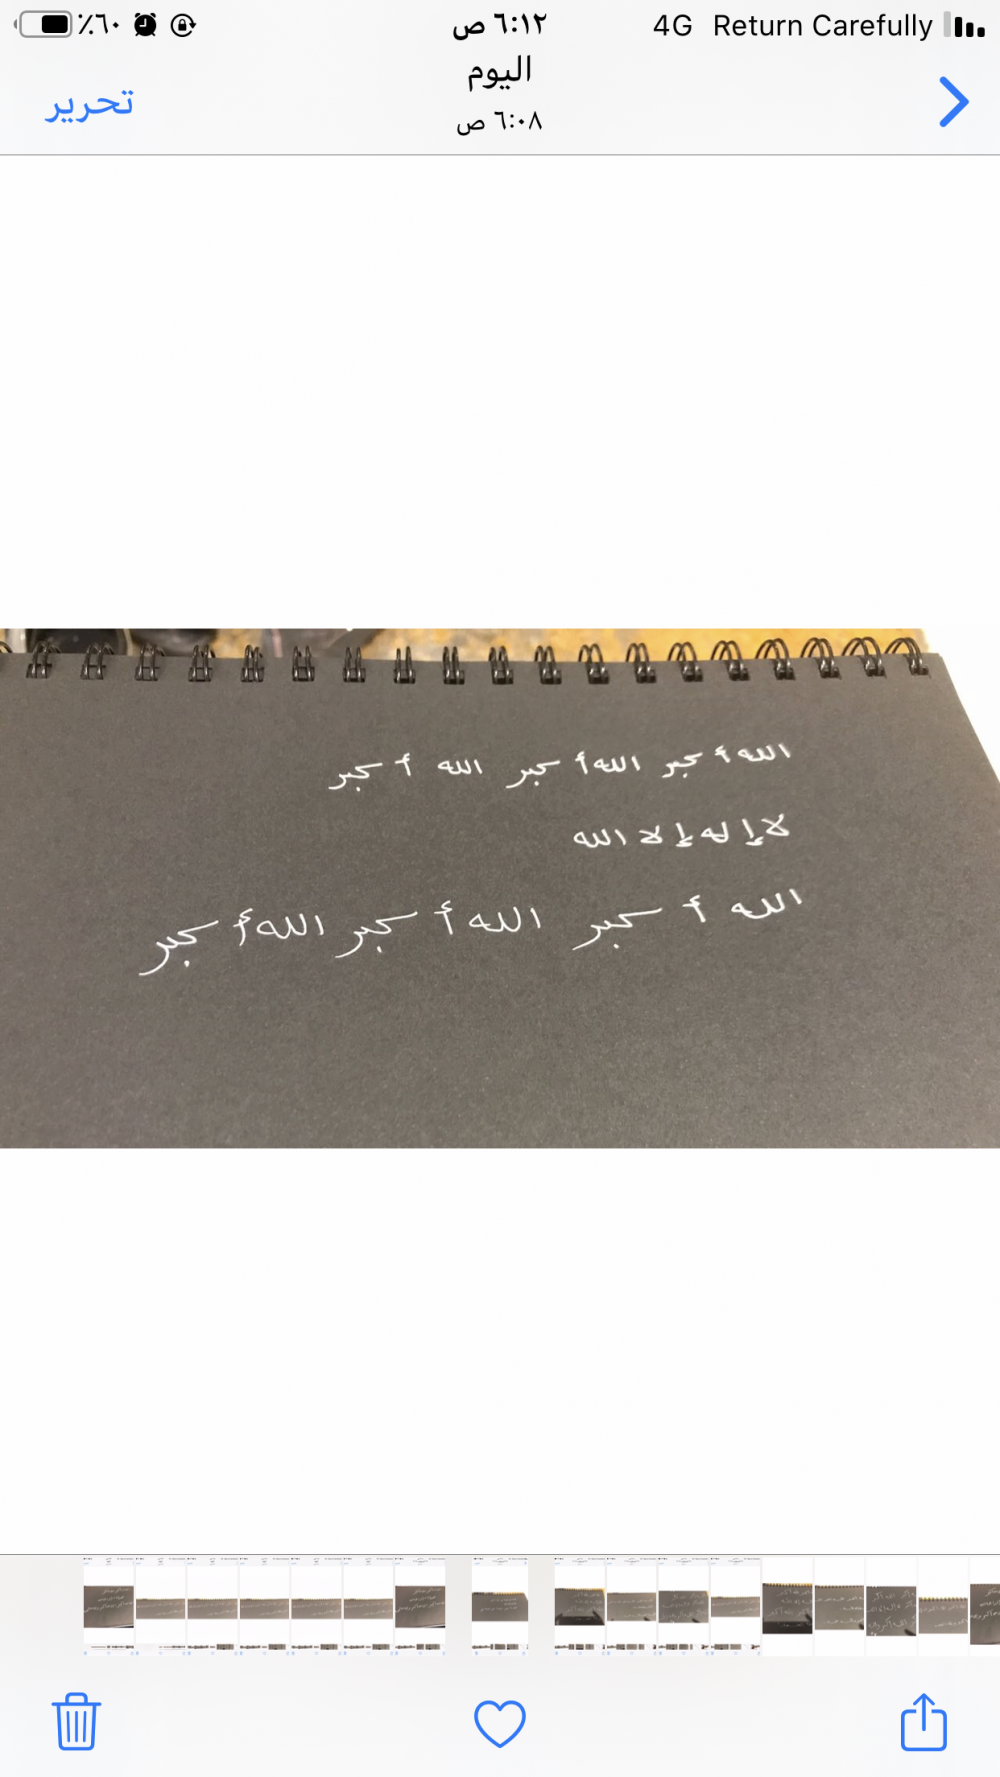 ٪٦٠ ٦:١٢ ص 4G Return Carefully
اليوم
تحرير
٦:٠٨ ص
الله أكبر الله أكبر الله أكبر
لا إله إلا الله
الله أكبر الله أكبر الله أكبر